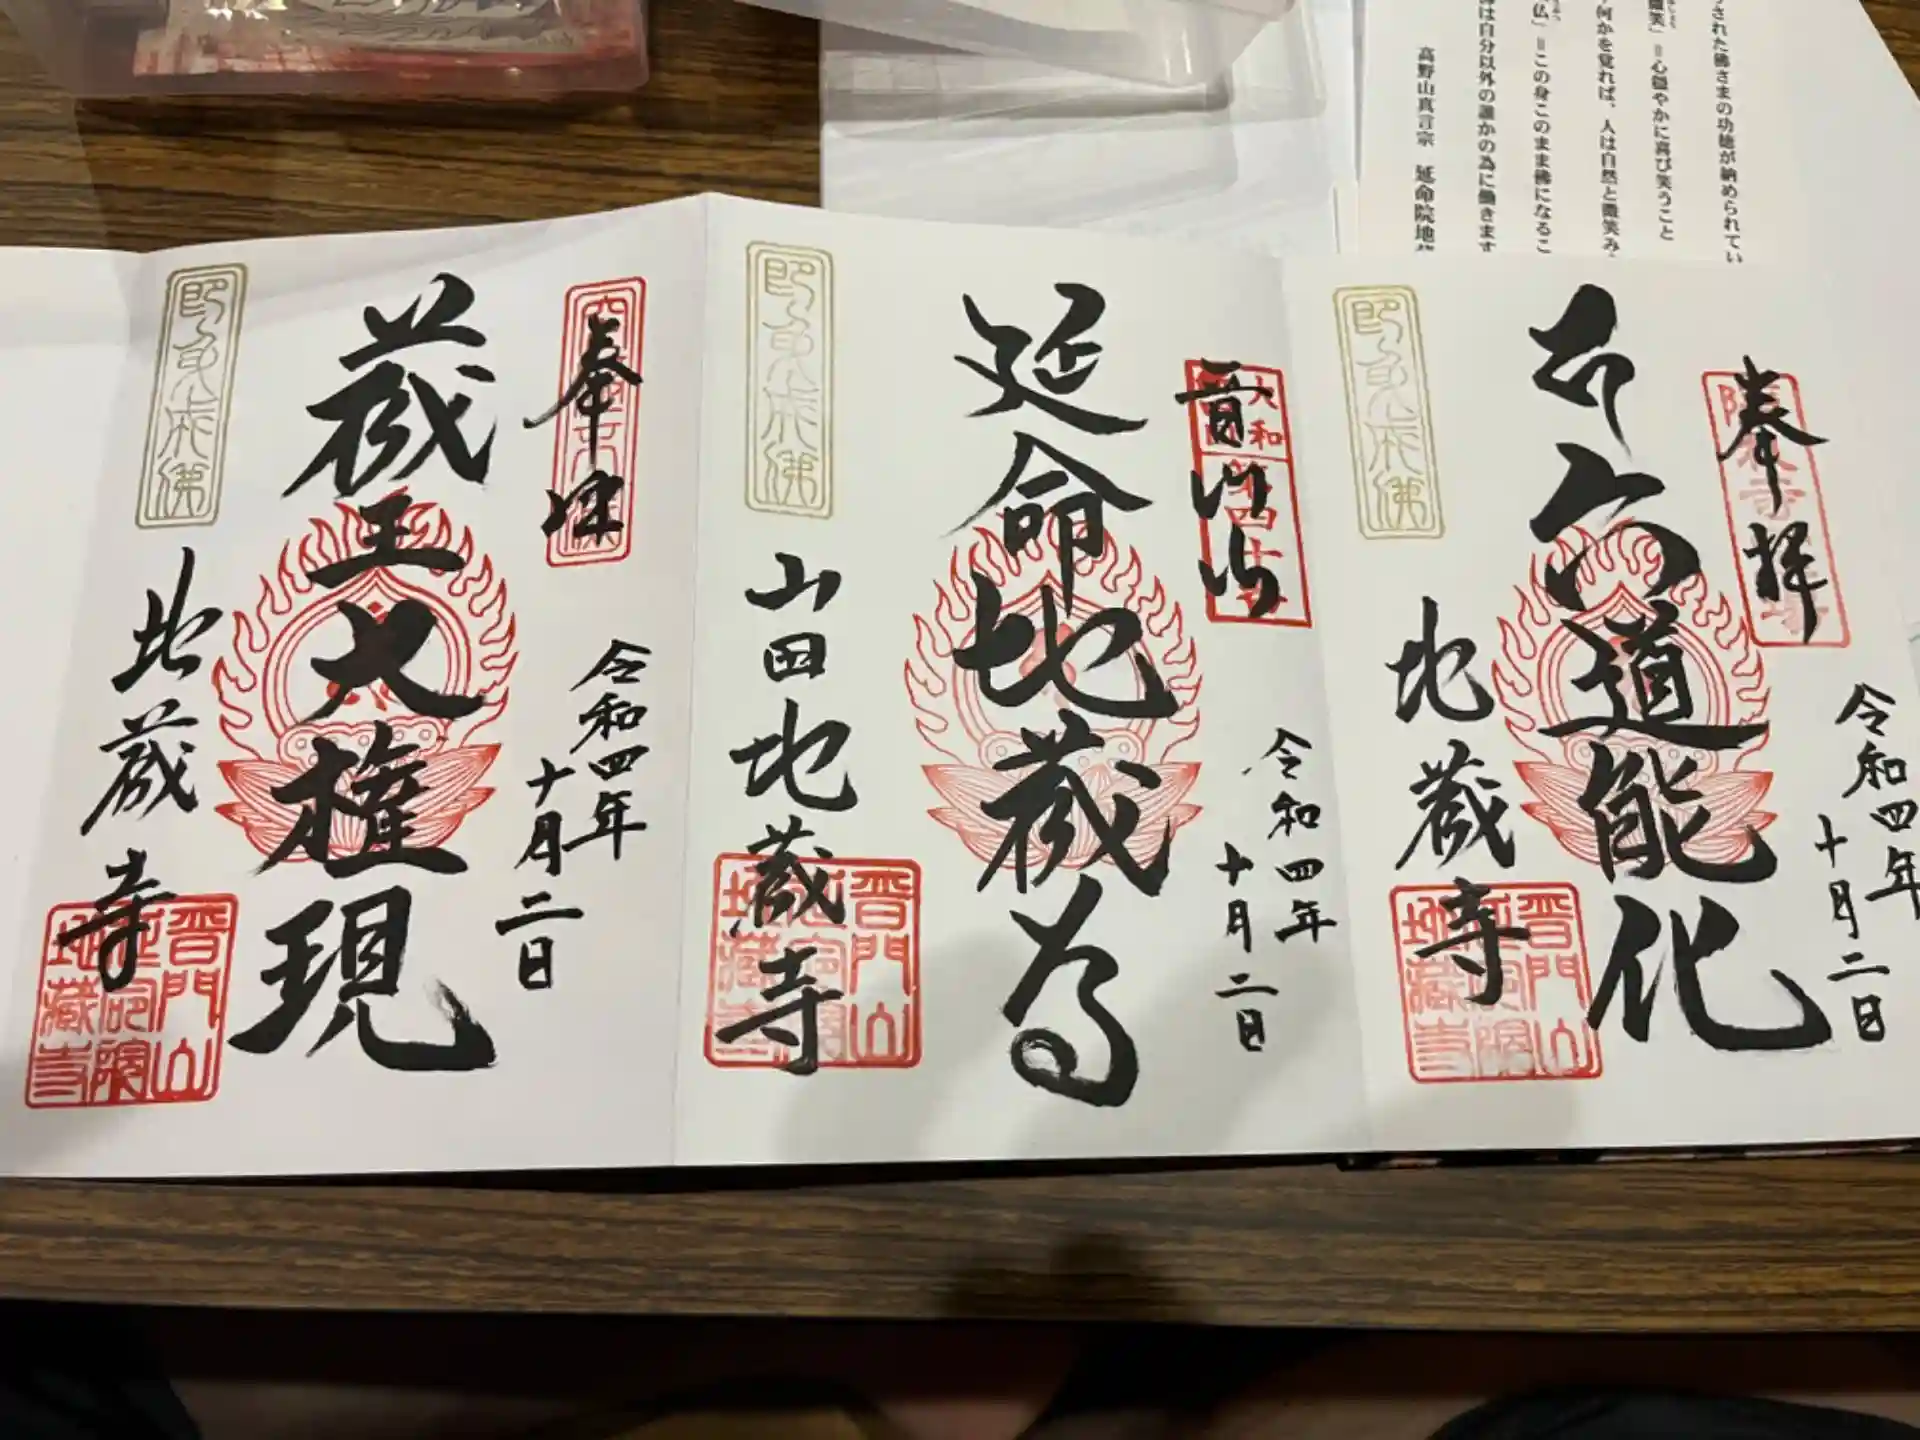 された佛さまの功徳が納められてい
微笑」＝心穏やかに喜び笑うこと
何かを覚れば、人は自然と微笑み
仏」＝この身このまま佛になるこ
は自分以外の誰かの為に働きます
高野山真言宗　延命院地蔵
奉拝
令和四年
十月二日
六道能化
地蔵寺
即身成佛
普門山
延命院
地蔵寺
大和
令和四年
十月二日
延命地蔵尊
山田地蔵寺
即身成佛
普門山
延命院
地蔵寺
奉拝
令和四年
十月二日
蔵王大権現
地蔵寺
即身成佛
普門山
延命院
地蔵寺